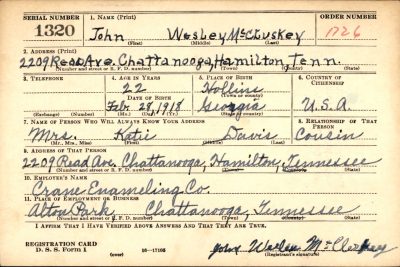 SERIAL NUMBER 1. NAME (Print) ORDER NUMBER
1320 John Wesley McCluskey 1726
(First) (Middle) (Last)
2. ADDRESS (Print)
2209 Read Ave. Chattanooga, Hamilton, Tenn.
(Number and street or R. F. D. number) (Town) (County) (State)
3. TELEPHONE 4. AGE IN YEARS 5. PLACE OF BIRTH 6. COUNTRY OF CITIZENSHIP
22 Hollins
DATE OF BIRTH (Town or county)
Feb. 28, 1918 Georgia U.S.A.
(Exchange) (Number) (Mo.) (Day) (Yr.) (State or country)
7. NAME OF PERSON WHO WILL ALWAYS KNOW YOUR ADDRESS 8. RELATIONSHIP OF THAT PERSON
Mrs. Katie Davis Cousin
(Mr., Mrs., Miss) (First) (Middle) (Last)
9. ADDRESS OF THAT PERSON
2209 Read Ave, Chattanooga, Hamilton, Tennessee
(Number and street or R. F. D. number) (Town) (County) (State)
10. EMPLOYER'S NAME
Crane Enameling Co.
11. PLACE OF EMPLOYMENT OR BUSINESS
Alton Park Chattanooga, Tennessee
(Number and street or R. F. D. number) (Town) (County) (State)
I AFFIRM THAT I HAVE VERIFIED ABOVE ANSWERS AND THAT THEY ARE TRUE.
REGISTRATION CARD
D. S. S. Form 1 (over) 16—17105 John Weslen McCluskey
(Registrant's signature)